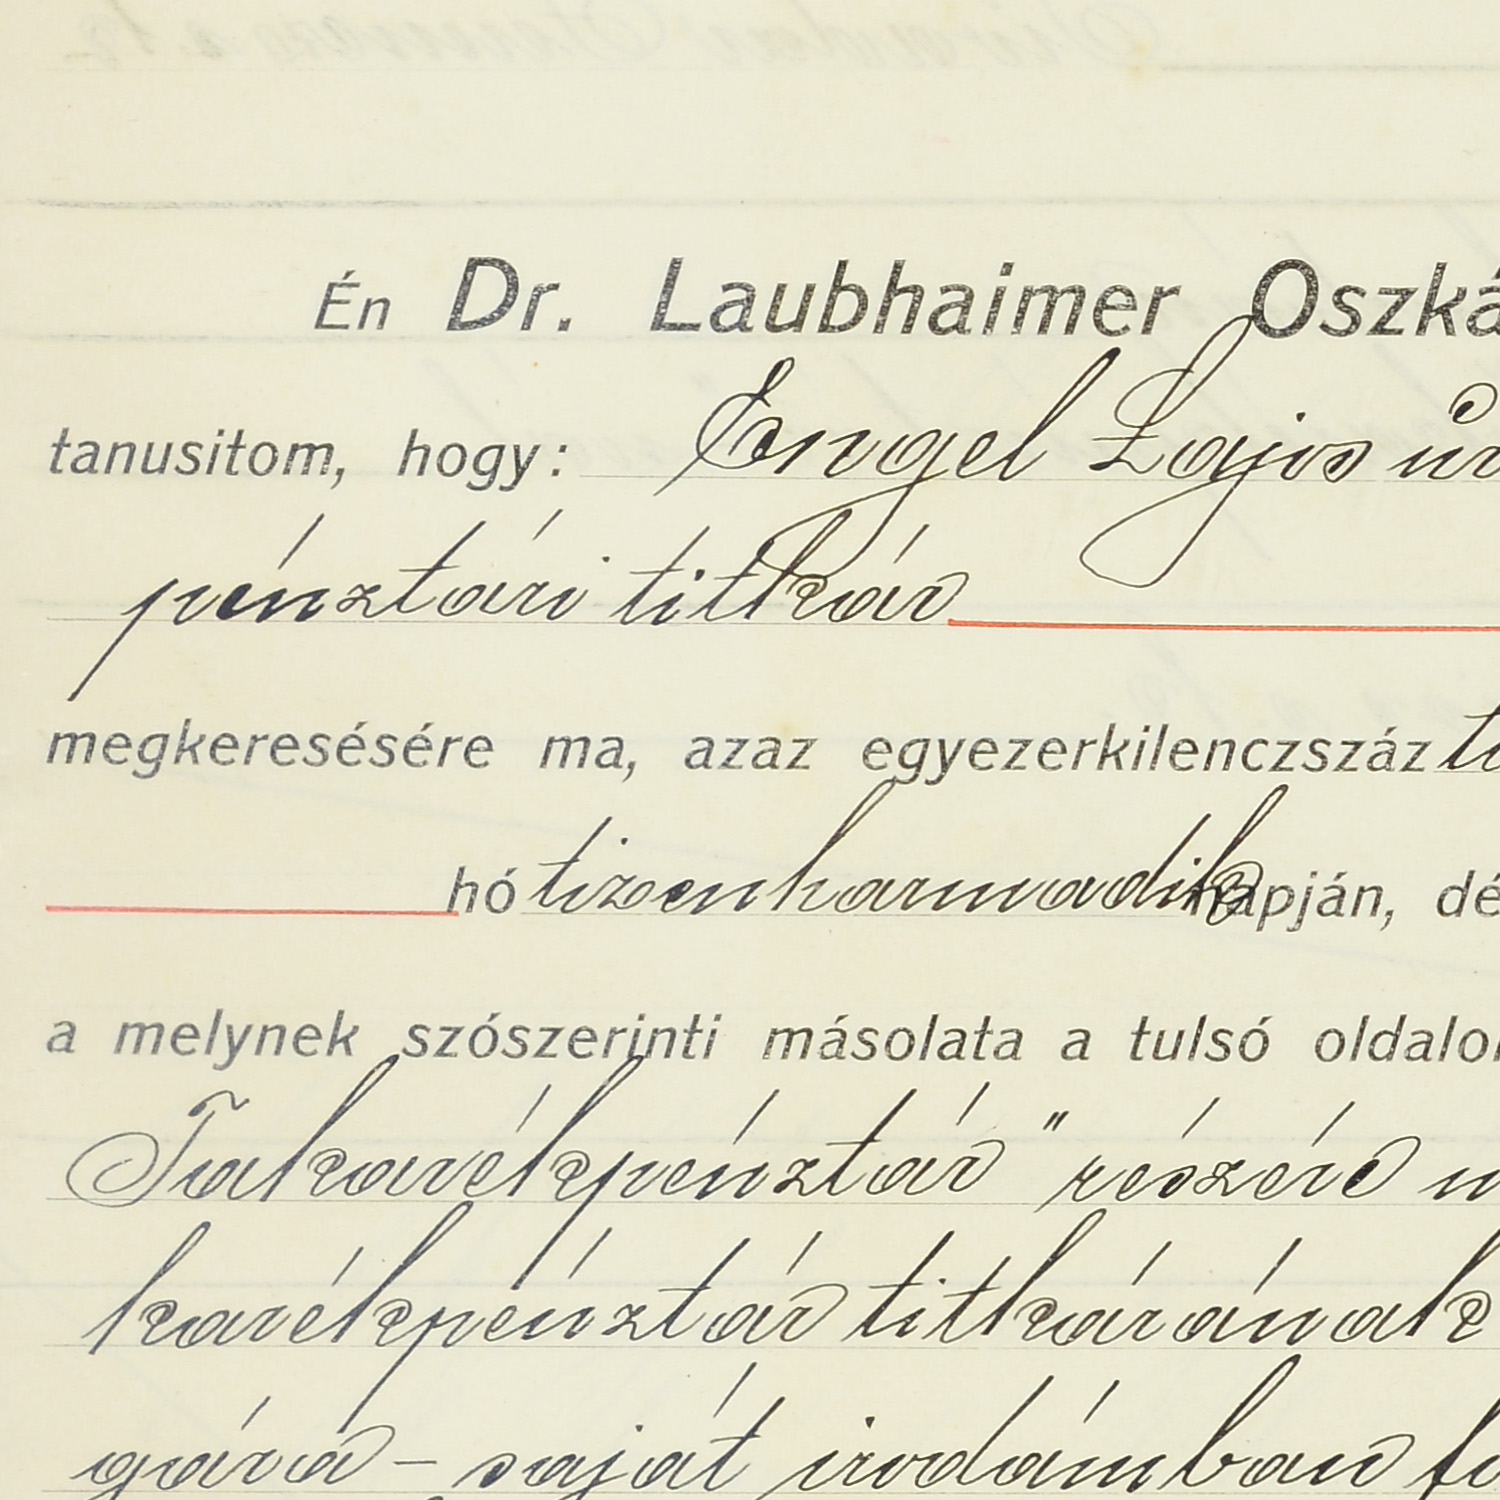 Én Dr. Laubhaimer Oszká
tanusitom, hogy: Engel Lajos úr
pénztári titkár
megkeresésére ma, azaz egyezerkilenczszáz
hó tizenharmadik napján, dé
a melynek szószerinti másolata a tulsó oldalon
Takarékpénztár" részére
karékpénztár titkárának
gára - saját irodámban